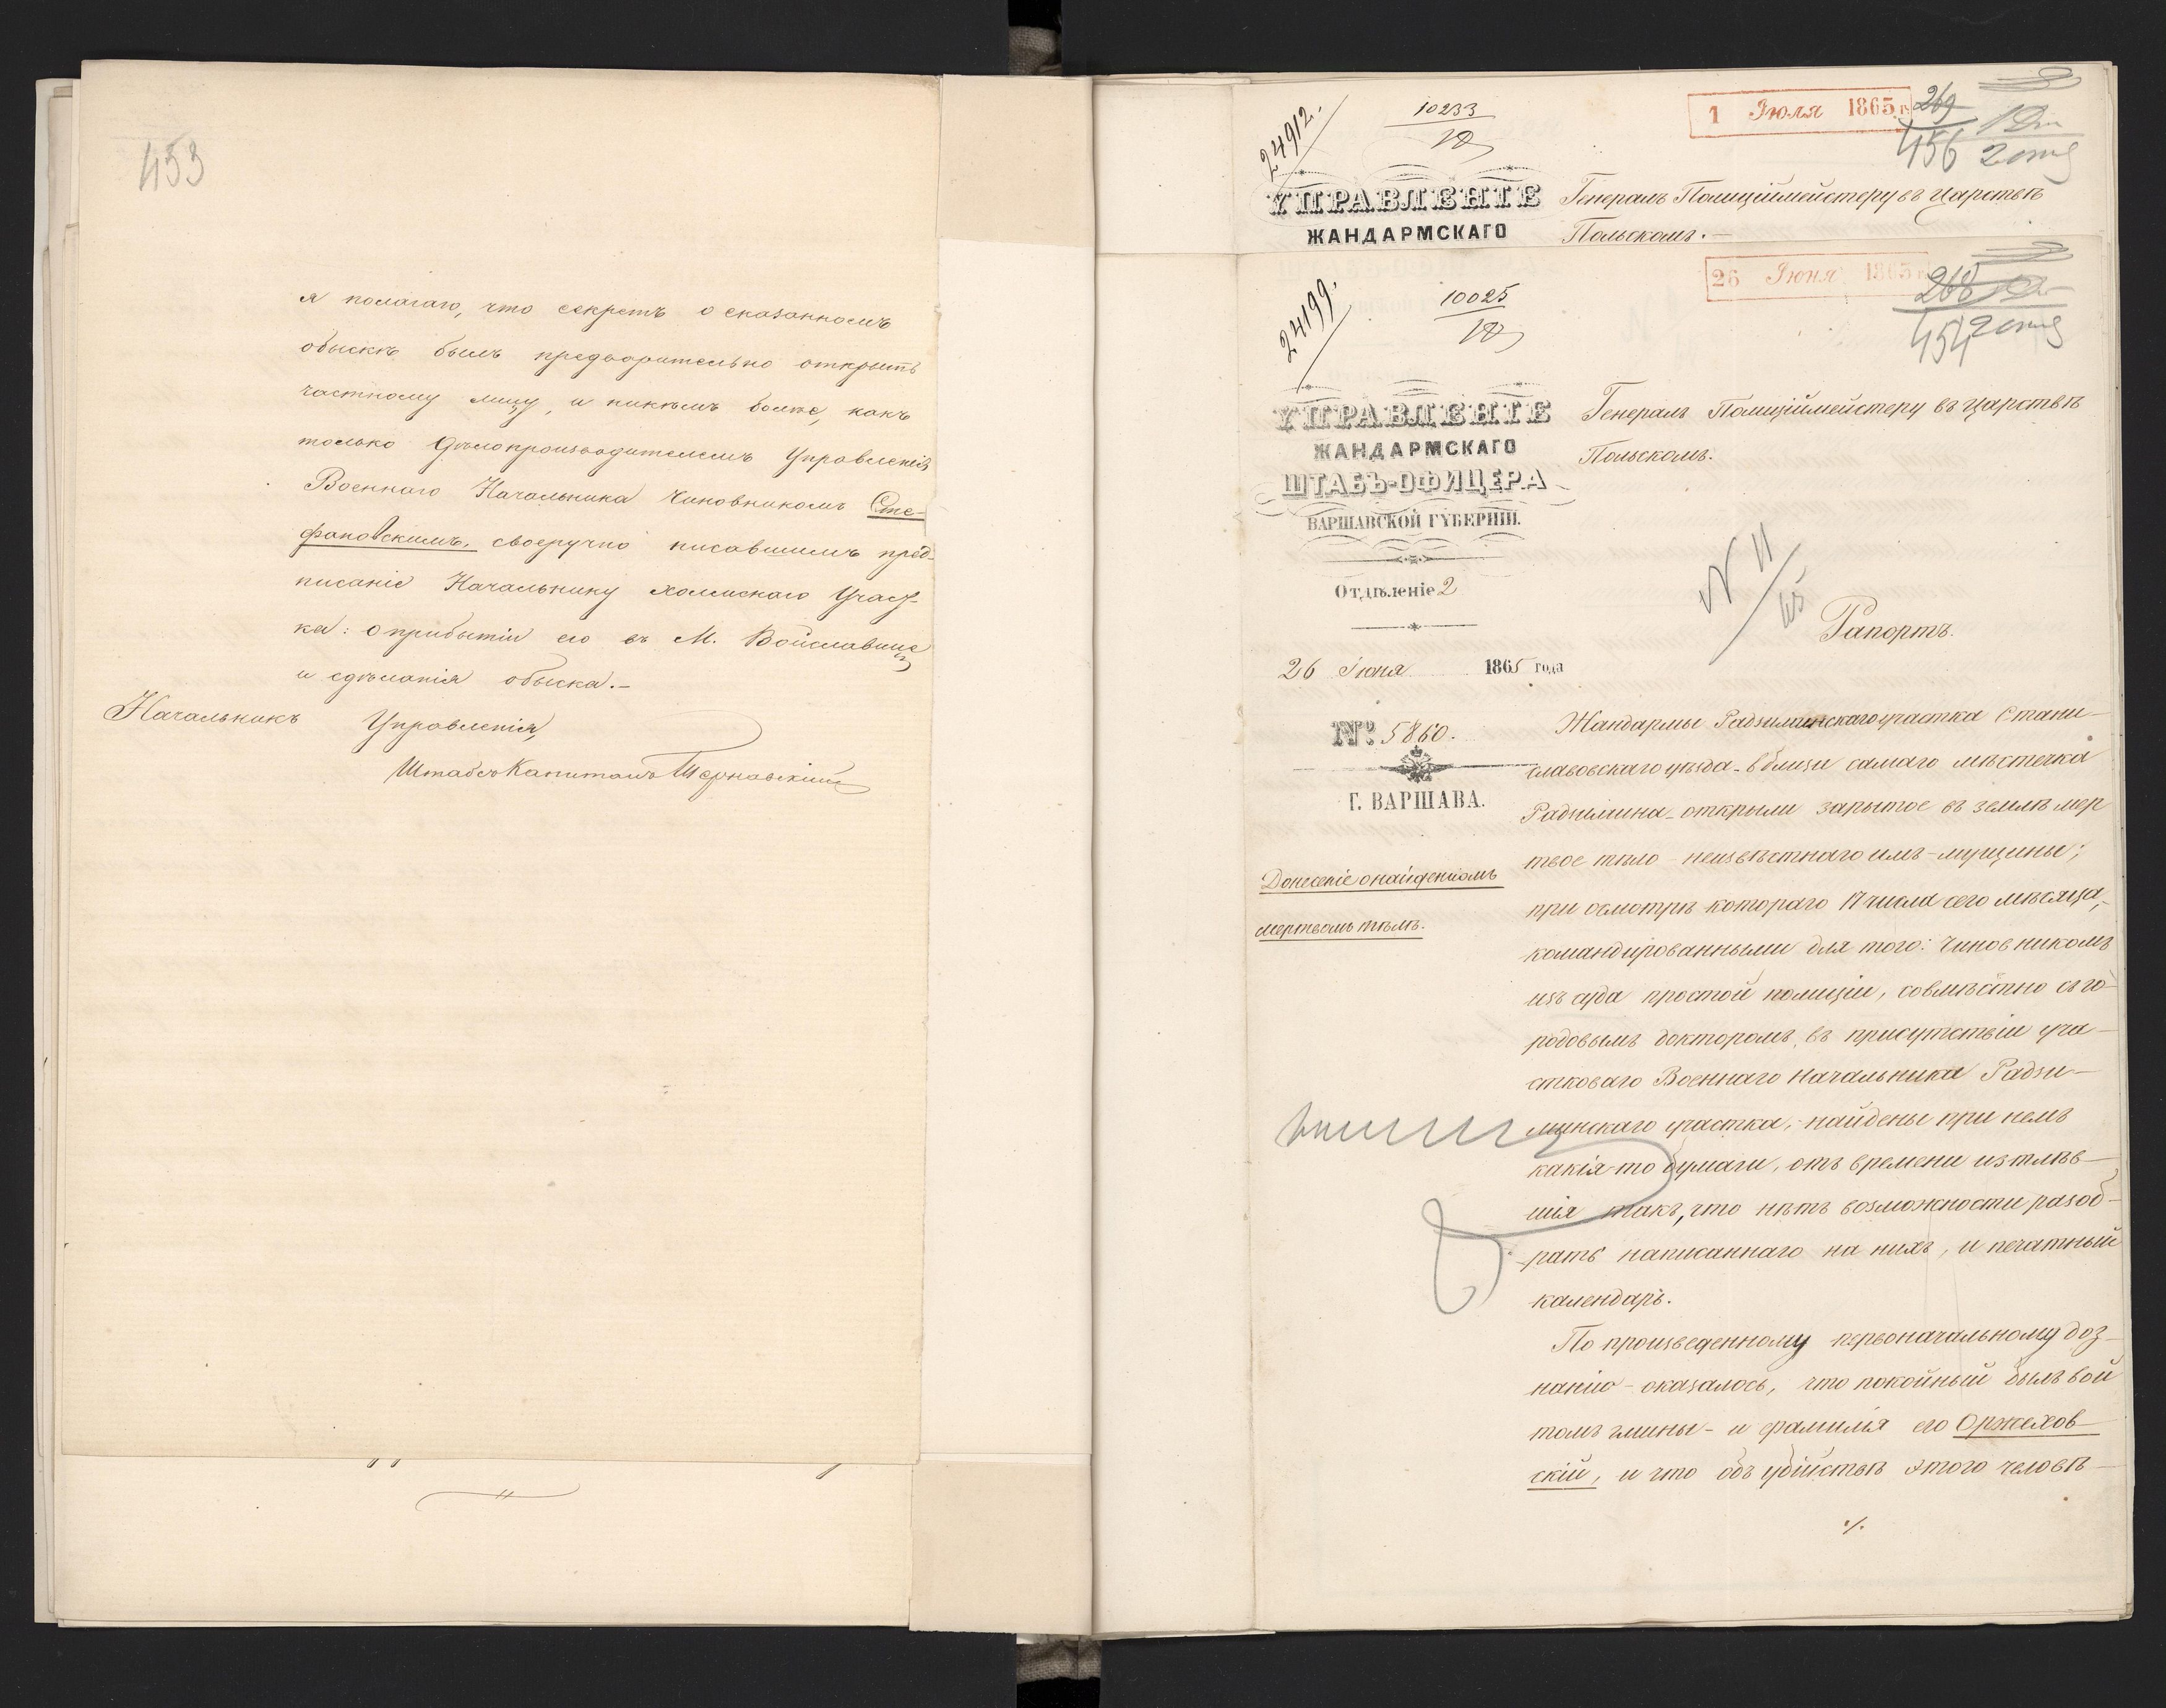 453
я полагаю, что секретъ о сказанномъ
обыскѣ былъ предварительно открытъ
частному лицу, и никѣмъ болѣе, какъ
только Дѣлопроизводителемъ Управленія
Военнаго Начальника Чиновникомъ Сте-
фановскимъ, своеручно писавшимъ пред-
писаніе Начальнику Холмскаго Участ-
ка: о прибытіи его въ М. Войславице
и сдѣланія обыска.-
Начальникъ Управленія,
Штабсъ Капитанъ
24912.
10233
1 Іюля 1865 г.
269
456
2 отд
УПРАВЛЕНІЕ
ЖАНДАРМСКАГО
Генералъ Полиціймейстеру въ Царствѣ
Польскомъ.-
24199.
10025
26 Іюня 1865 г.
268
454
2 отд
УПРАВЛЕНІЕ
ЖАНДАРМСКАГО
ШТАБЪ-ОФИЦЕРА
ВАРШАВСКОЙ ГУБЕРНІИ.
Отдѣленіе 2
26 Іюня 1865 года
№ 5860.
Г. ВАРШАВА.
Донесеніе о найденномъ
мертвомъ тѣлѣ.
Генералъ Полиціймейстеру въ Царствѣ
Польскомъ.
N 11
65
Рапортъ.
Жандармы Радзиминскаго участка Стани-
славовскаго уѣзда - вблизи самаго мѣстечка
Радзимина - открыли зарытое въ землѣ мер
твое тѣло - неизвѣстнаго имъ - мущины;
при осмотрѣ котораго 17 числа сего мѣсяца,
командированными для того: Чиновникомъ
изъ суда простой полиціи, совмѣстно съ го-
родовымъ докторомъ, въ присутствіи уча-
стковаго Военнаго Начальника Радзи-
минскаго участка, найдены при немъ
какія-то бумаги, отъ времени изтлѣв-
шія такъ, что нѣтъ возможности разоб-
рать написаннаго на нихъ, и печатный
календарь.
По произведенному первоначальному доз-
нанію - оказалось, что покойный былъ вой
томъ гмины - и фамилія его Оржехов-
скій, и что объ убійствѣ этого человѣ-
./.